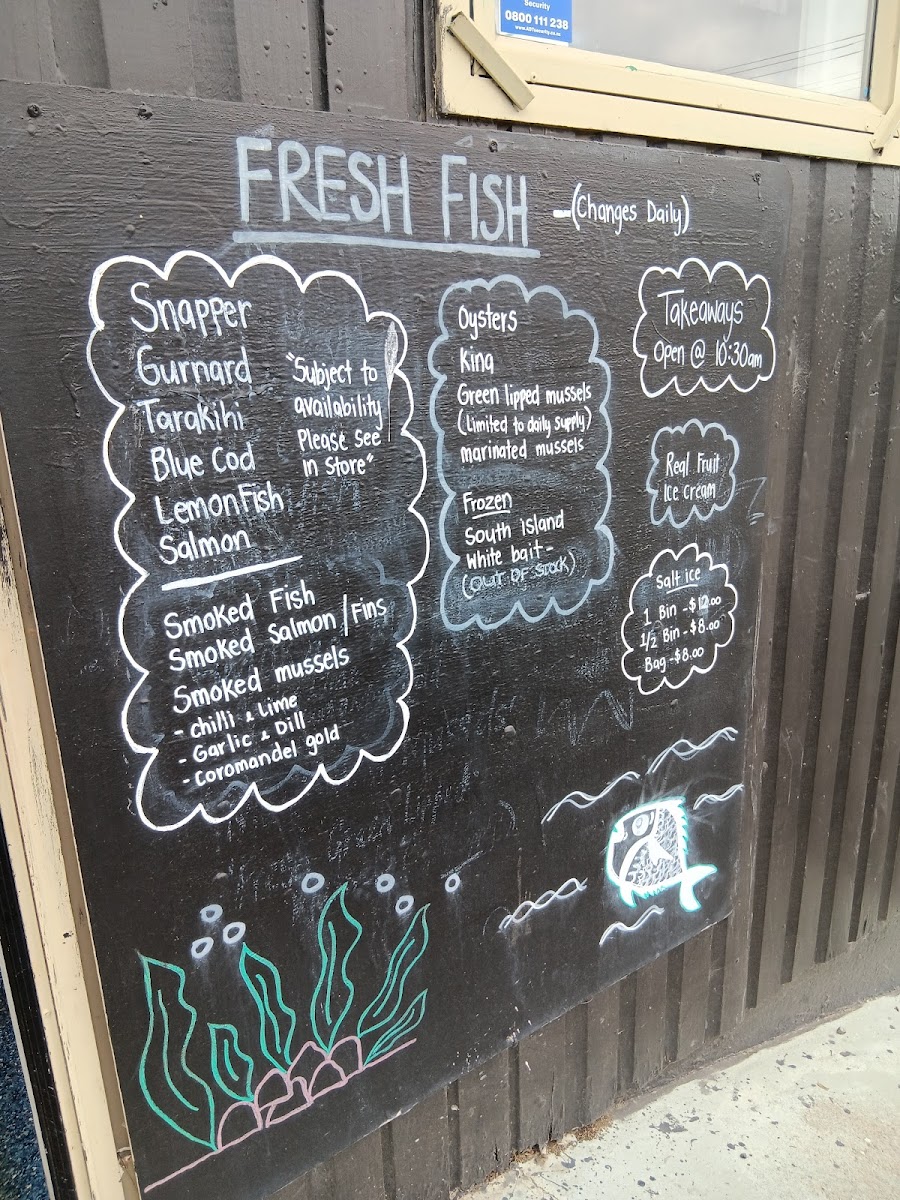 Security
0800 111 238
FRESH FISH - (Changes Daily)
Snapper
Gurnard
Tarakihi
Blue Cod
Lemon Fish
Salmon
"Subject to
availability
Please see
in store"
Smoked Fish
Smoked Salmon/Fins
Smoked mussels
- chilli & Lime
- Garlic & Dill
- coromandel gold
Oysters
King
Green lipped mussels
(Limited to daily supply)
marinated mussels
Frozen
South Island
White bait -
(OUT OF STOCK)
Takeaways
Open @ 10:30am
Real Fruit
Ice Cream
Salt ice
1 Bin - $12.00
1/2 Bin - $8.00
Bag - $8.00